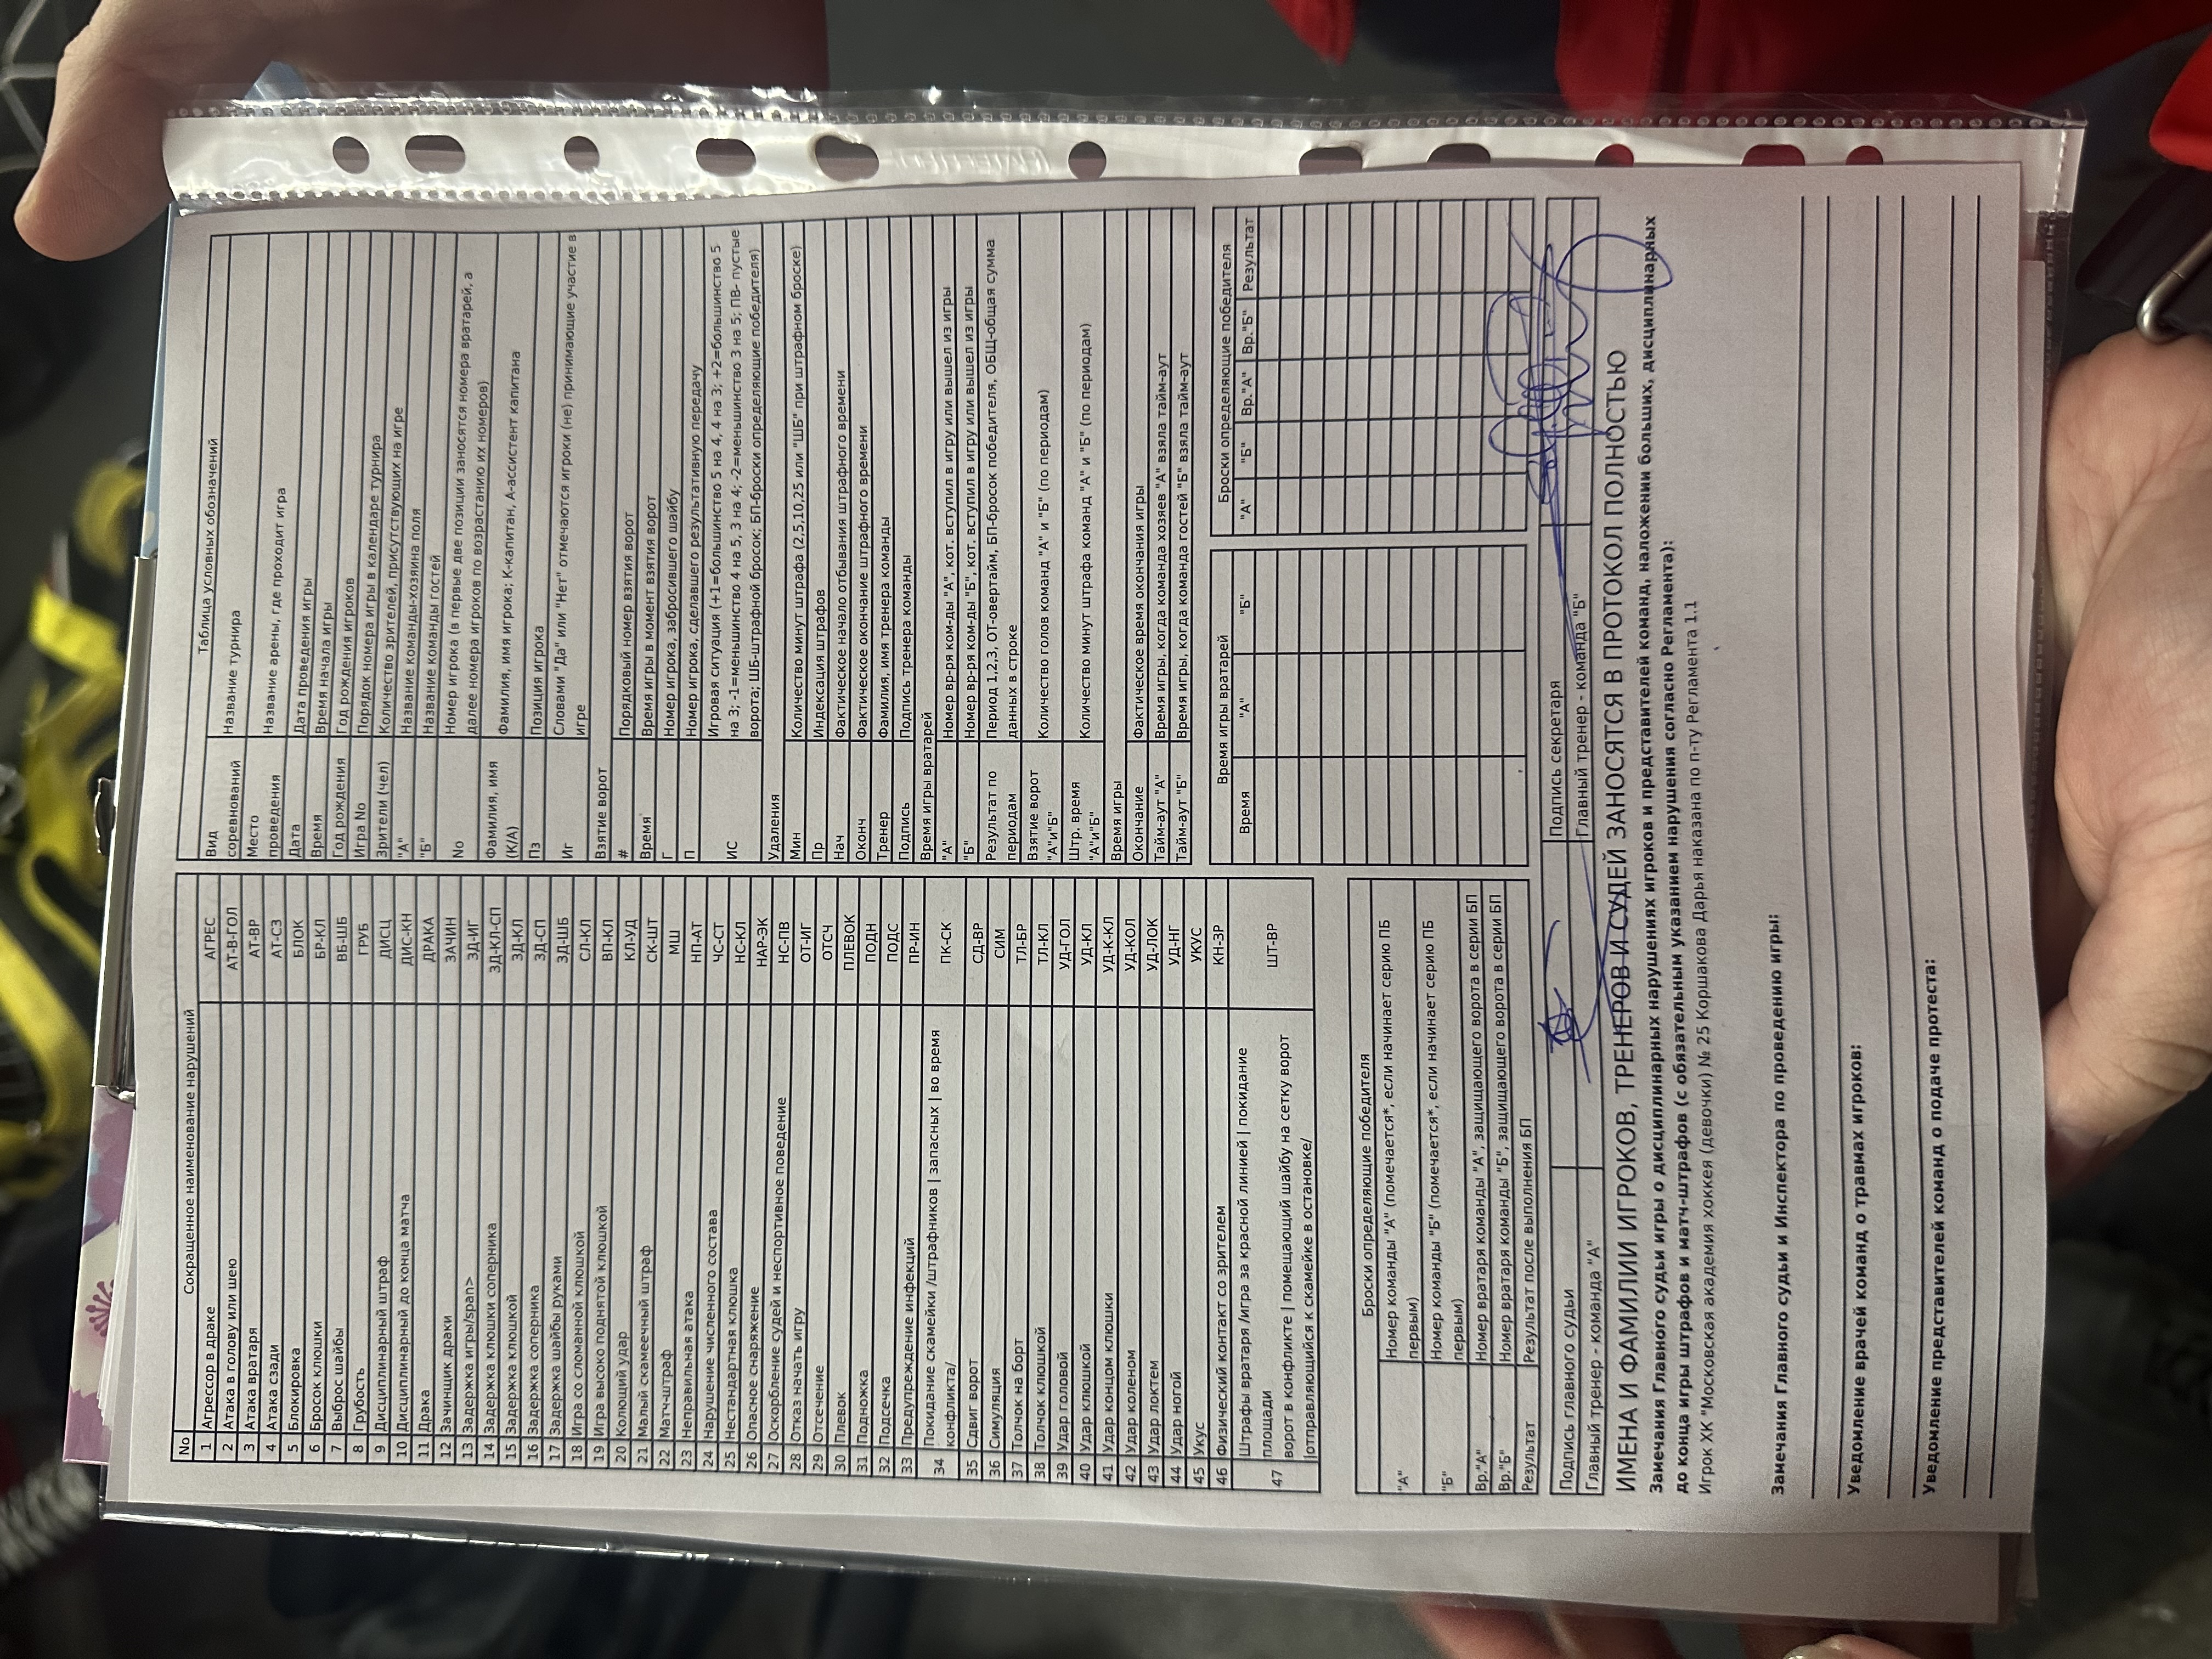 Сокращенное наименование нарушений
No
1 Агрессор в драке АГРЕС
2 Атака в голову или шею АТ-В-ГОЛ
3 Атака вратаря АТ-ВР
4 Атака сзади АТ-СЗ
5 Блокировка БЛОК
6 Бросок клюшки БР-КЛ
7 Выброс шайбы ВБ-ШБ
8 Грубость ГРУБ
9 Дисциплинарный штраф ДИСЦ
10 Дисциплинарный до конца матча ДИС-КН
11 Драка ДРАКА
12 Зачинщик драки ЗАЧИН
13 Задержка игры/span> ЗД-ИГ
14 Задержка клюшки соперника ЗД-КЛ-СП
15 Задержка клюшкой ЗД-КЛ
16 Задержка соперника ЗД-СП
17 Задержка шайбы руками ЗД-ШБ
18 Игра со сломанной клюшкой СЛ-КЛ
19 Игра высоко поднятой клюшкой ВП-КЛ
20 Колющий удар КЛ-УД
21 Малый скамеечный штраф СК-ШТ
22 Матч-штраф МШ
23 Неправильная атака НП-АТ
24 Нарушение численного состава ЧС-СТ
25 Нестандартная клюшка НС-КЛ
26 Опасное снаряжение НАР-ЭК
27 Оскорбление судей и неспортивное поведение НС-ПВ
28 Отказ начать игру ОТ-ИГ
29 Отсечение ОТСЧ
30 Плевок ПЛЕВОК
31 Подножка ПОДН
32 Подсечка ПОДС
33 Предупреждение инфекций ПР-ИН
34 Покидание скамейки /штрафников | запасных | во время
конфликта/ ПК-СК
35 Сдвиг ворот СД-ВР
36 Симуляция СИМ
37 Толчок на борт ТЛ-БР
38 Толчок клюшкой ТЛ-КЛ
39 Удар головой УД-ГОЛ
40 Удар клюшкой УД-КЛ
41 Удар концом клюшки УД-К-КЛ
42 Удар коленом УД-КОЛ
43 Удар локтем УД-ЛОК
44 Удар ногой УД-НГ
45 Укус УКУС
46 Физический контакт со зрителем КН-ЗР
47 Штрафы вратаря /игра за красной линией | покидание
площади
ворот в конфликте | помещающий шайбу на сетку ворот
|отправляющийся к скамейке в остановке/ ШТ-ВР
Таблица условных обозначений
Вид
соревнований Название турнира
Место
проведения Название арены, где проходит игра
Дата Дата проведения игры
Время Время начала игры
Год рождения Год рождения игроков
Игра No Порядок номера игры в календаре турнира
Зрители (чел) Количество зрителей, присутствующих на игре
"А" Название команды-хозяина поля
"Б" Название команды гостей
No Номер игрока (в первые две позиции заносятся номера вратарей, а
далее номера игроков по возрастанию их номеров)
Фамилия, имя
(К/А) Фамилия, имя игрока; К-капитан, А-ассистент капитана
Пз Позиция игрока
Иг Словами "Да" или "Нет" отмечаются игроки (не) принимающие участие в
игре
Взятие ворот
# Порядковый номер взятия ворот
Время Время игры в момент взятия ворот
Г Номер игрока, забросившего шайбу
П Номер игрока, сделавшего результативную передачу
ИС Игровая ситуация (+1=большинство 5 на 4, 4 на 3; +2=большинство 5
на 3; -1=меньшинство 4 на 5, 3 на 4; -2=меньшинство 3 на 5; ПВ- пустые
ворота; ШБ-штрафной бросок; БП-броски определяющие победителя)
Удаления
Мин Количество минут штрафа (2,5,10,25 или "ШБ" при штрафном броске)
Пр Индексация штрафов
Нач Фактическое начало отбывания штрафного времени
Оконч Фактическое окончание штрафного времени
Тренер Фамилия, имя тренера команды
Подпись Подпись тренера команды
Время игры вратарей
"А" Номер вр-ря ком-ды "А", кот. вступил в игру или вышел из игры
"Б" Номер вр-ря ком-ды "Б", кот. вступил в игру или вышел из игры
Результат по
периодам Период 1,2,3, ОТ-овертайм, БП-бросок победителя, ОБЩ-общая сумма
данных в строке
Взятие ворот
"А"и"Б" Количество голов команд "А" и "Б" (по периодам)
Штр. время
"А"и"Б" Количество минут штрафа команд "А" и "Б" (по периодам)
Время игры
Окончание Фактическое время окончания игры
Тайм-аут "А" Время игры, когда команда хозяев "А" взяла тайм-аут
Тайм-аут "Б" Время игры, когда команда гостей "Б" взяла тайм-аут
Броски определяющие победителя
"А" Номер команды "А" (помечается*, если начинает серию ПБ
первым)
"Б" Номер команды "Б" (помечается*, если начинает серию ПБ
первым)
Вр."А" Номер вратаря команды "А", защищающего ворота в серии БП
Вр."Б" Номер вратаря команды "Б", защищающего ворота в серии БП
Результат Результат после выполнения БП
Время игры вратарей
Время "А" "Б"
Броски определяющие победителя
"А" "Б" Вр."А" Вр."Б" Результат
Подпись главного судьи Подпись секретаря
Главный тренер - команда "А" Главный тренер - команда "Б"
ИМЕНА И ФАМИЛИИ ИГРОКОВ, ТРЕНЕРОВ И СУДЕЙ ЗАНОСЯТСЯ В ПРОТОКОЛ ПОЛНОСТЬЮ
Замечания Главного судьи игры о дисциплинарных нарушениях игроков и представителей команд, наложении больших, дисциплинарных
до конца игры штрафов и матч-штрафов (с обязательным указанием нарушения согласно Регламента):
Игрок ХК "Московская академия хоккея (девочки) № 25 Коршакова Дарья наказана по п-ту Регламента 1.1
Замечания Главного судьи и Инспектора по проведению игры:
Уведомление врачей команд о травмах игроков:
Уведомление представителей команд о подаче протеста: